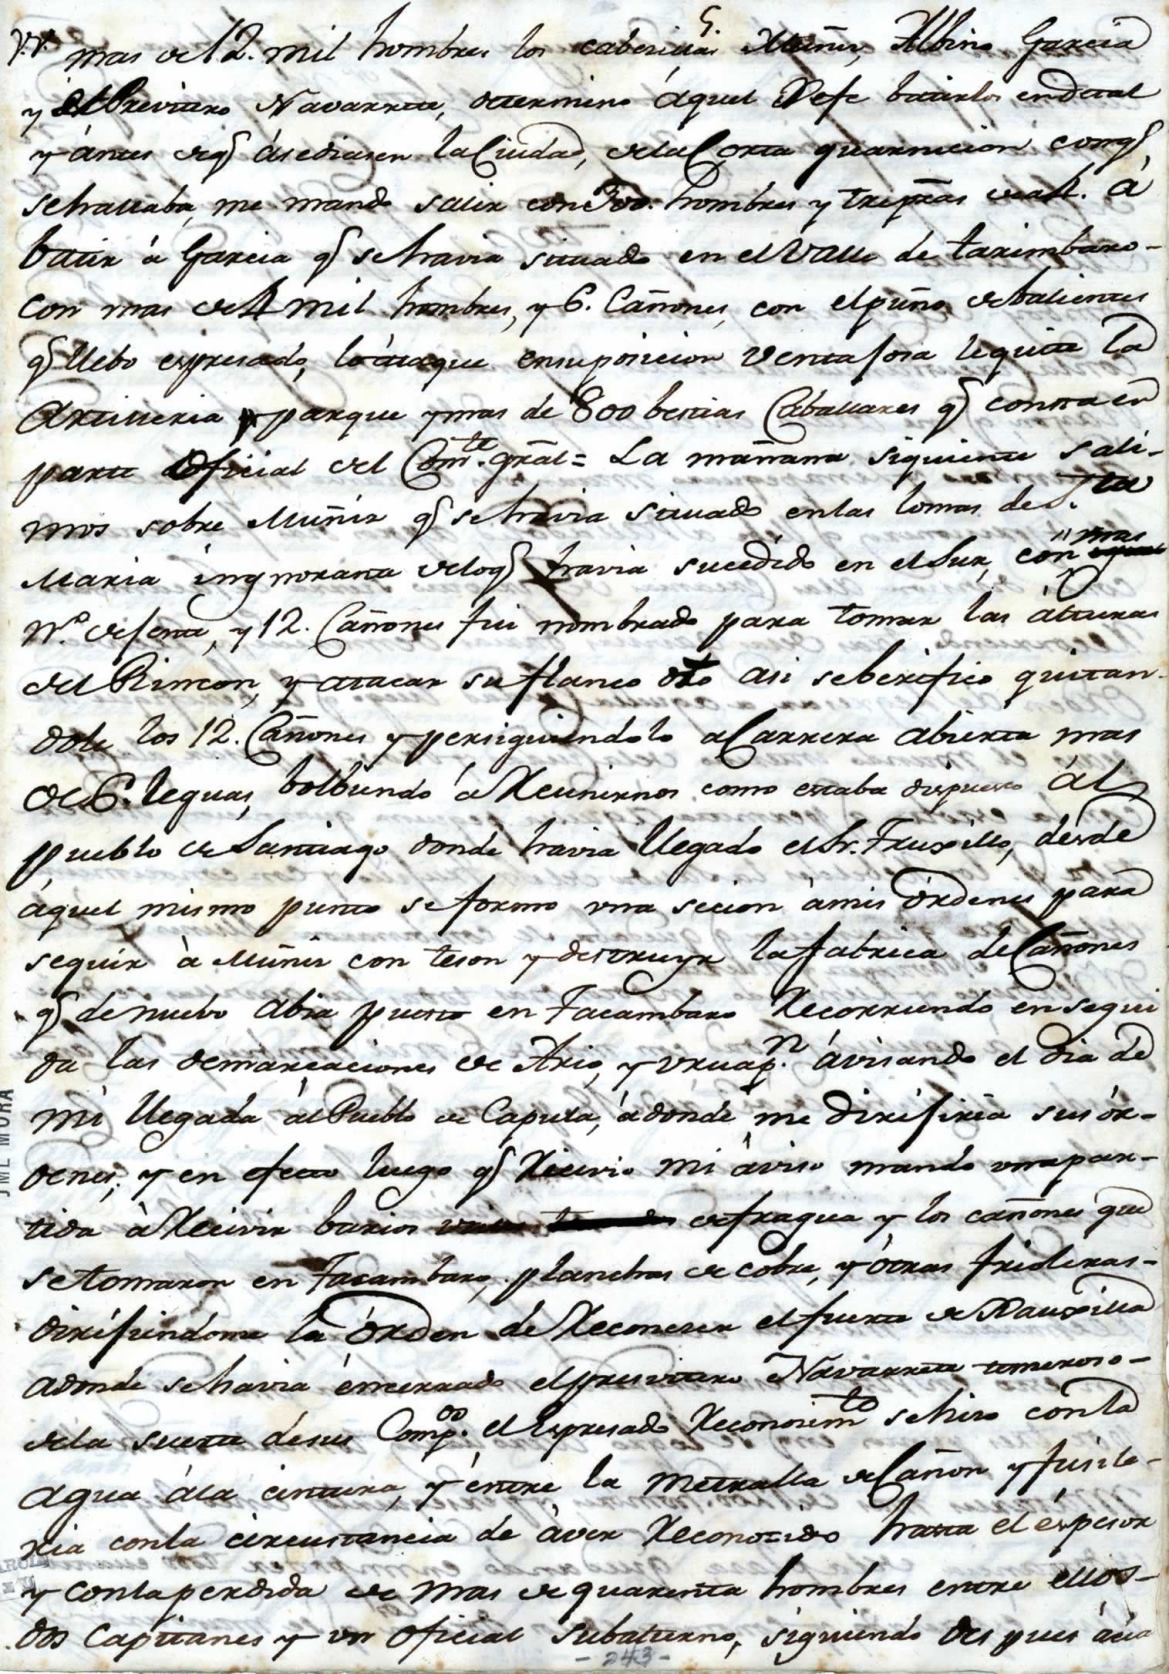 V.V. mas de 12. mil hombres los cabecillas Muñiz, Albino Garcia
y el Presvitero Navarrete, determino áquel Xefe batirlos en detal
y ántes de q̃ ásediasen la Ciudad, de la Corta guarnicion con q̃
se hallaba, me mandó salir con 300. hombres y tres piezas de art. á
batir á Garcia q̃ se havia situado en el Valle de tarimbaro-
con mas de 4 mil hombres, y 6. Cañones, con el puño de balientes
q̃ llebo espresado, lo átaque en su posicion Ventajosa le quite la
Artilleria y parque y mas de 800 bestias Caballares q̃ consta en
parte oficial del Com.te gral= La mañana siguiente sali-
mos sobre Muñiz q̃ se havia situado en las lomas de S.ta
Maria íngnorante de loq̃ havia sucedido en el Sur, con mas
N.o de jente, y 12. Cañones fui nombrado para tomar las álturas
del Rincon, y atacar su flanco dro asi se berifico quitan-
dole los 12. Cañones y persiguiendolo a Carrera abierta mas
de 6. leguas, bolbiendo á Reunirnos como estaba dispuesto ál
pueblo de Santiago donde havia llegado el Sr. Truxillo, desde
áquel mismo punto se formo una secion á mis órdenes para
seguir á Muñiz con teson y destruyr la fabrica de Cañones
q̃ de nuebo abia puesto en Tacambaro Recorriendo en segui
da las demarcaciones de Ario, y Vruap.n ávisando el dia de
mi llegada ál Pueblo de Capula, ádonde me dirijiria sus ór-
denes, y en efecto luego q̃ Recivio mi áviso mando una par-
tida á Recivir barios de fragua y los cañones que
se tomaron en Tacambaro, planchas de cobre, y ótras frioleras-
dirijiendome la órden de Reconocer el fuerte de Xauxilla
adonde se havia éncerrado el presvitero Navarrete temeroso-
de la suerte de sus Comp.os el espresado Reconocim.to se hizo con la
agua á la cintura, y éntre la metralla de Cañon y fusile-
ria con la circustancia de áver Reconocido hasta el éspesor
y con la perdida de mas de quarenta hombres entre ellos-
dos Capitanes y un oficial subalterno, siguiendo despues ácia
-243-
JML MORA